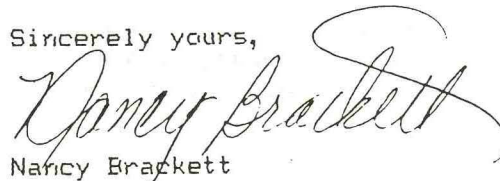 Sincerely yours,
Nancy Brackett
Nancy Brackett